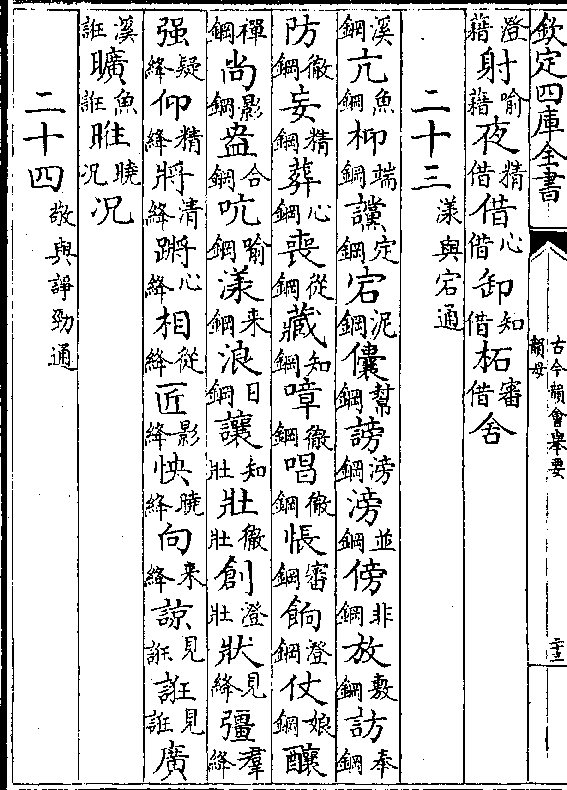 欽定四庫全書 古今韻會舉要 韻母
澄藉射喻藉夜精借借心借卸知借柘審借舍
二十三 漾與宕通
溪鋼亢魚鋼枊端鋼讜定鋼宕泥鋼儾幫鋼謗滂鋼滂並鋼傍非鋼放敷鋼訪奉鋼
防微鋼妄精鋼葬心鋼喪從鋼藏知鋼嶂徹鋼唱徹鋼悵審鋼餉澄鋼仗娘鋼釀
禪鋼尚影鋼盎合鋼吭喻鋼漾来鋼浪日鋼讓知壯壯徹壯創澄壯狀見絳彊羣絳
强疑絳仰精絳將清絳蹡心絳相從絳匠影絳怏曉絳向来絳諒見誑誑見誑廣
溪誑曠魚誑暀曉况况
二十四 敬與諍勁通